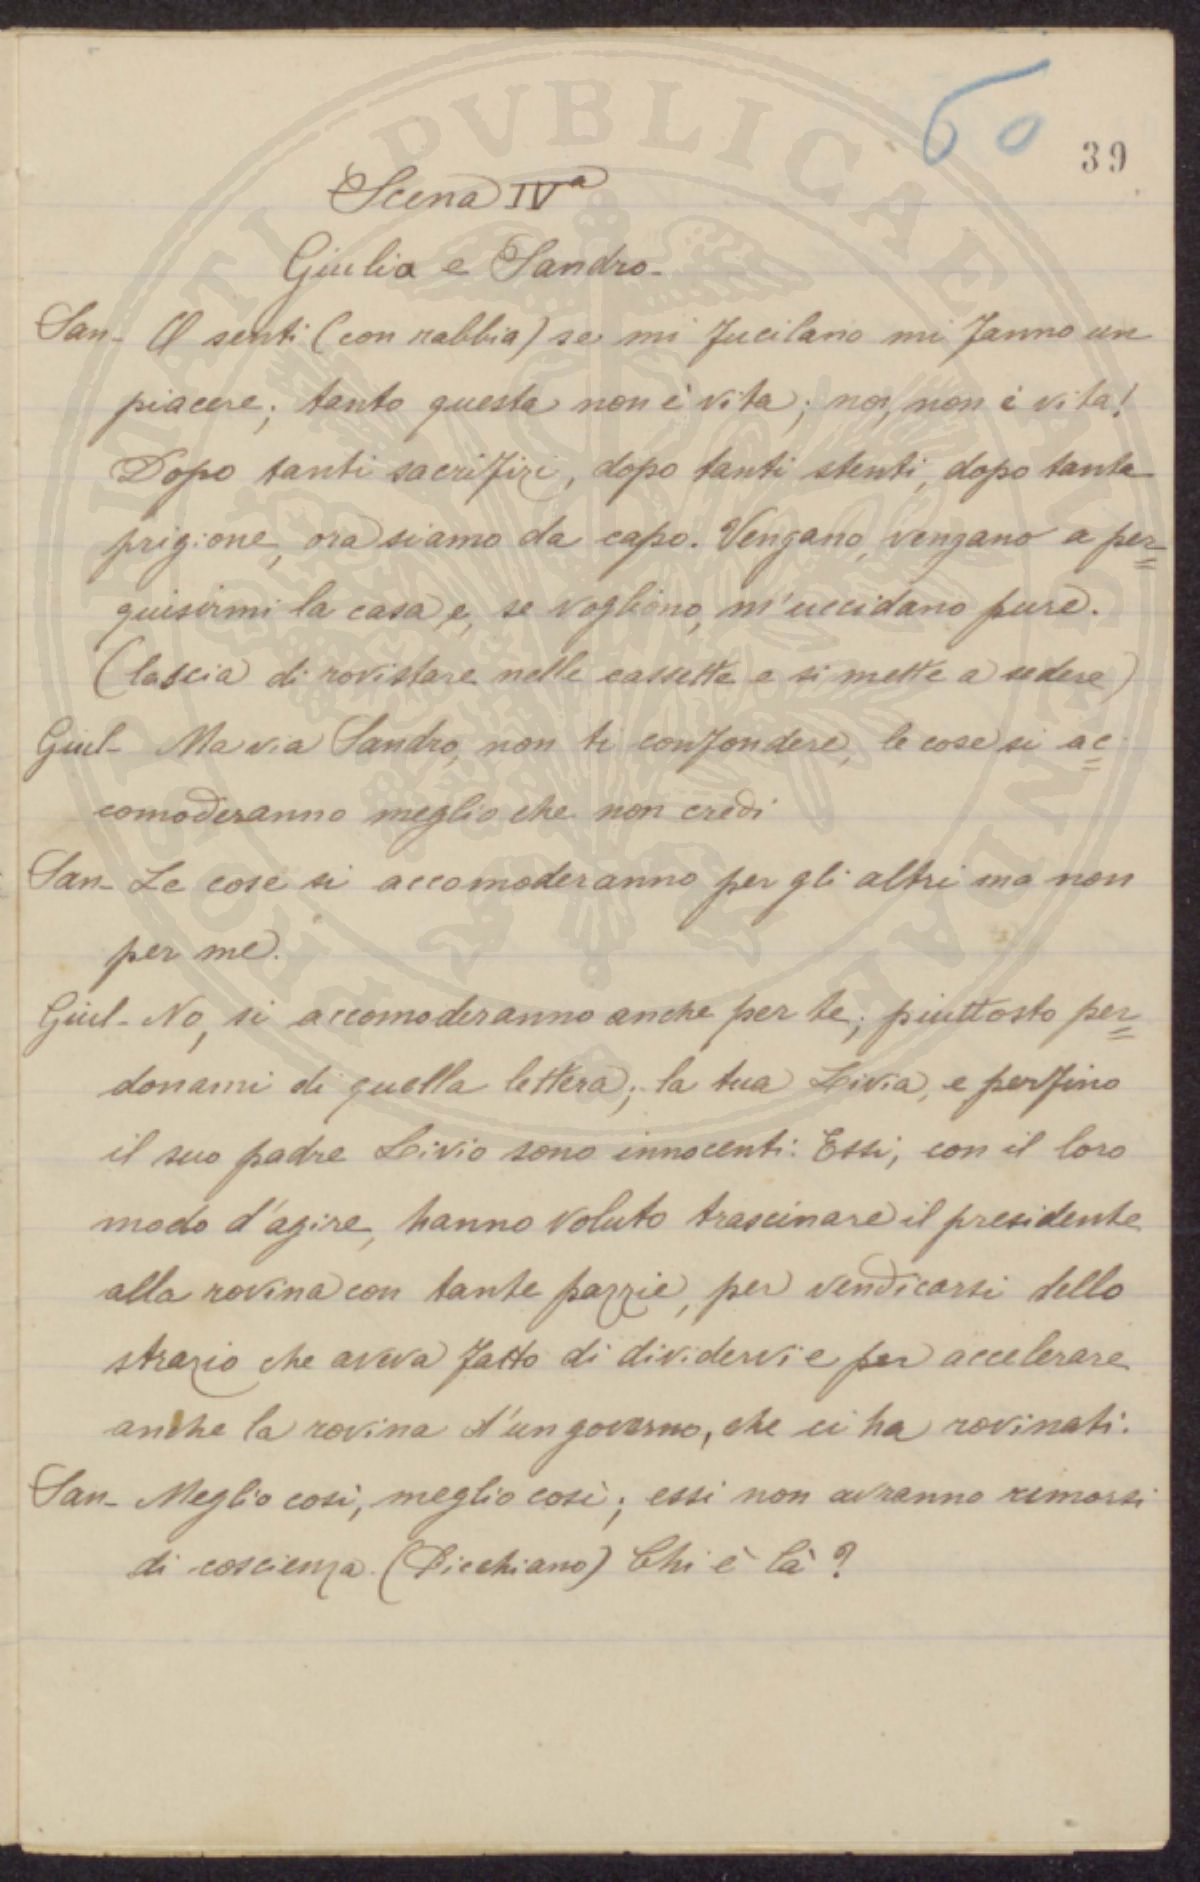 60
39
Scena IVª
Giulia e Sandro-
San- O senti (con rabbia) se mi fucilano mi fanno un
piacere; tanto questa non è vita; no, non è vita!
Dopo tanti sacrifizi, dopo tanti stenti, dopo tanta
prigione, ora siamo da capo. Vengano, vengano a per=
quisirmi la casa e, se vogliono, m'uccidano pure.
(lascia di rovistare nelle cassette e si mette a sedere)
Giul- Ma via Sandro, non ti confondere, le cose si ac=
comoderanno meglio che non credi
San- Le cose si accomoderanno per gli altri ma non
per me.
Giul- No, si accomoderanno anche per te; piuttosto per=
donami di quella lettera; la tua Livia, e perfino
il suo padre Livio sono innocenti: Essi, con il loro
modo d'agire, hanno voluto trascinare il presidente
alla rovina con tante pazzie, per vendicarsi dello
strazio che aveva fatto di dividervi e per accelerare
anche la rovina d'un governo, che ci ha rovinati.
San- Meglio così, meglio così; essi non avranno rimorsi
di coscienza. (Picchiano) Chi è là?
PVBLICAE